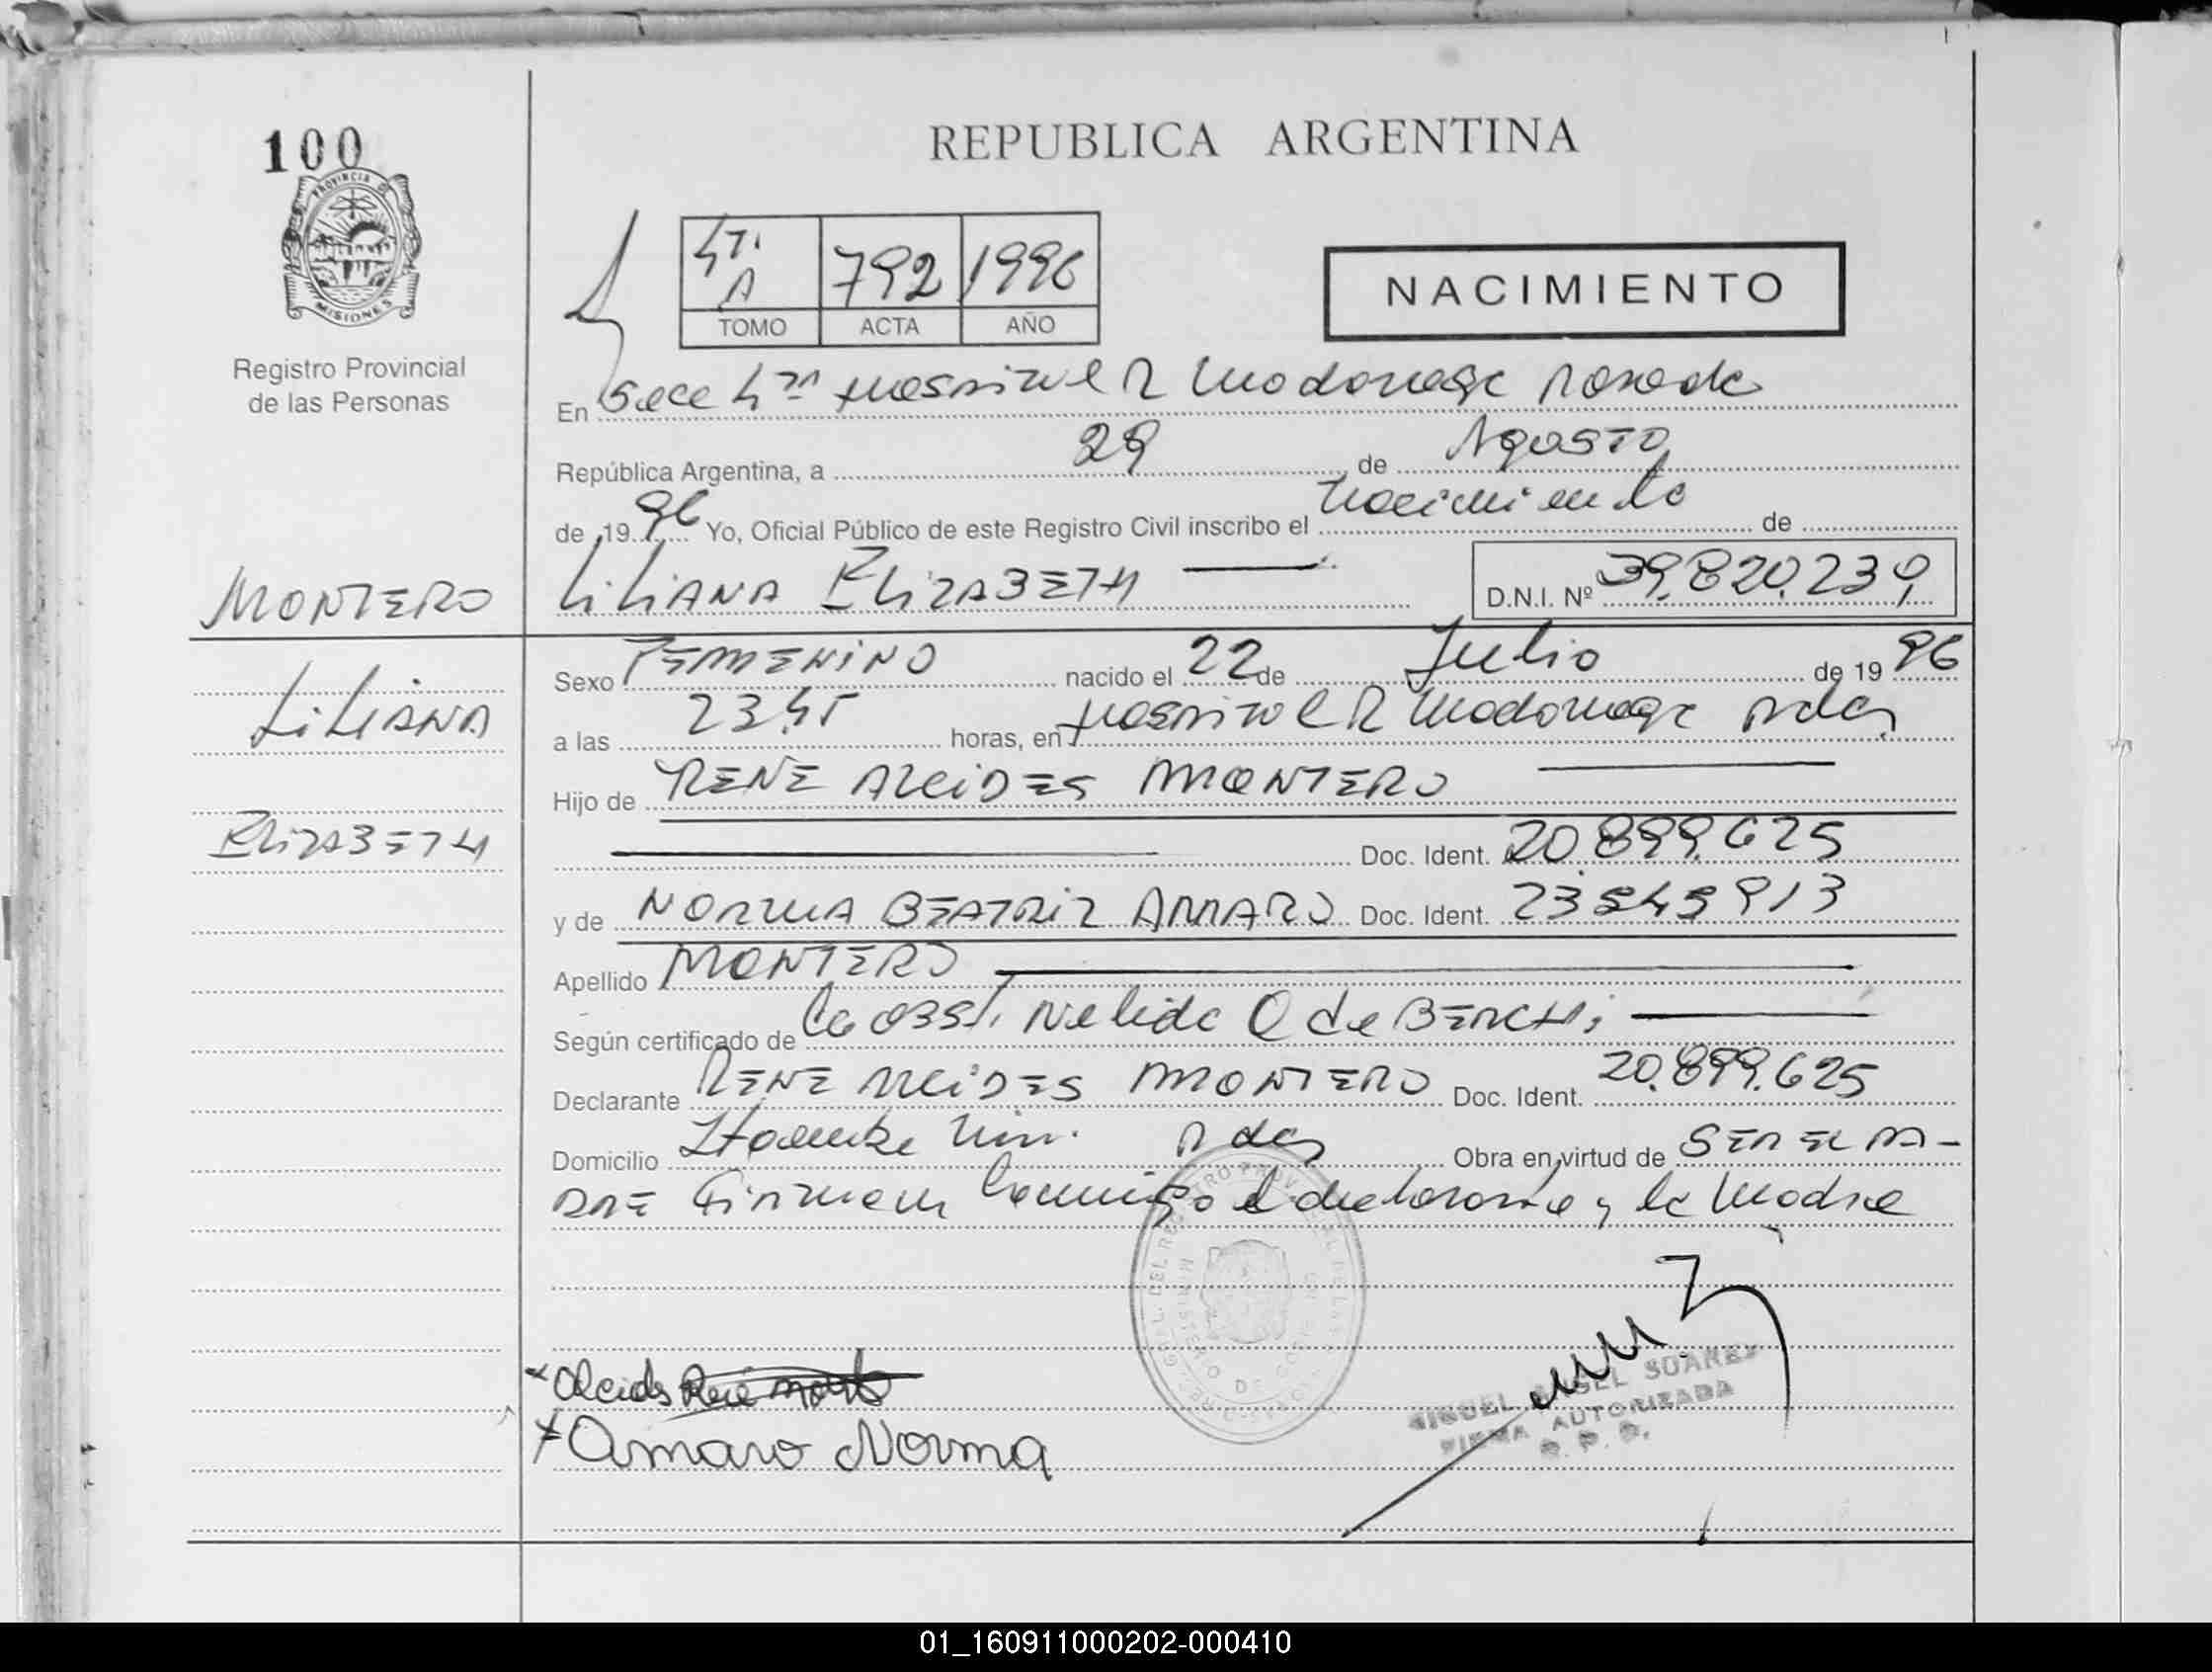 REPUBLICA ARGENTINA
100
PROVINCIA DE
MISIONES
Registro Provincial
de las Personas
4ta A 792 1996
TOMO ACTA AÑO
NACIMIENTO
En Secc 4ta Hospital R Madariaga Posadas
República Argentina, a 29 de Agosto
de 19 96 Yo, Oficial Público de este Registro Civil inscribo el nacimiento de
MONTERO
LILIANA ELIZABETH
D.N.I. Nº 39.820.239
LILIANA
ELIZABETH
Sexo FEMENINO nacido el 22 de Julio de 19 96
a las 23,45 horas, en Hospital R Madariaga Pdas
Hijo de RENE ALCIDES MONTERO
Doc. Ident. 20.899.625
y de NORMA BEATRIZ AMARO Doc. Ident. 23545913
Apellido MONTERO
Según certificado de la OBST. Nelida Q de BERCHI
Declarante RENE ALCIDES MONTERO Doc. Ident. 20.899.625
Domicilio Itaembe Mini. Pdas Obra en virtud de SER EL PA-
DRE Firman conmigo el declarante y la Madre
Alcides René
Amaro Norma
MIGUEL ANGEL SUAREZ
FIRMA AUTORIZADA
R. P. P.
01_160911000202-000410